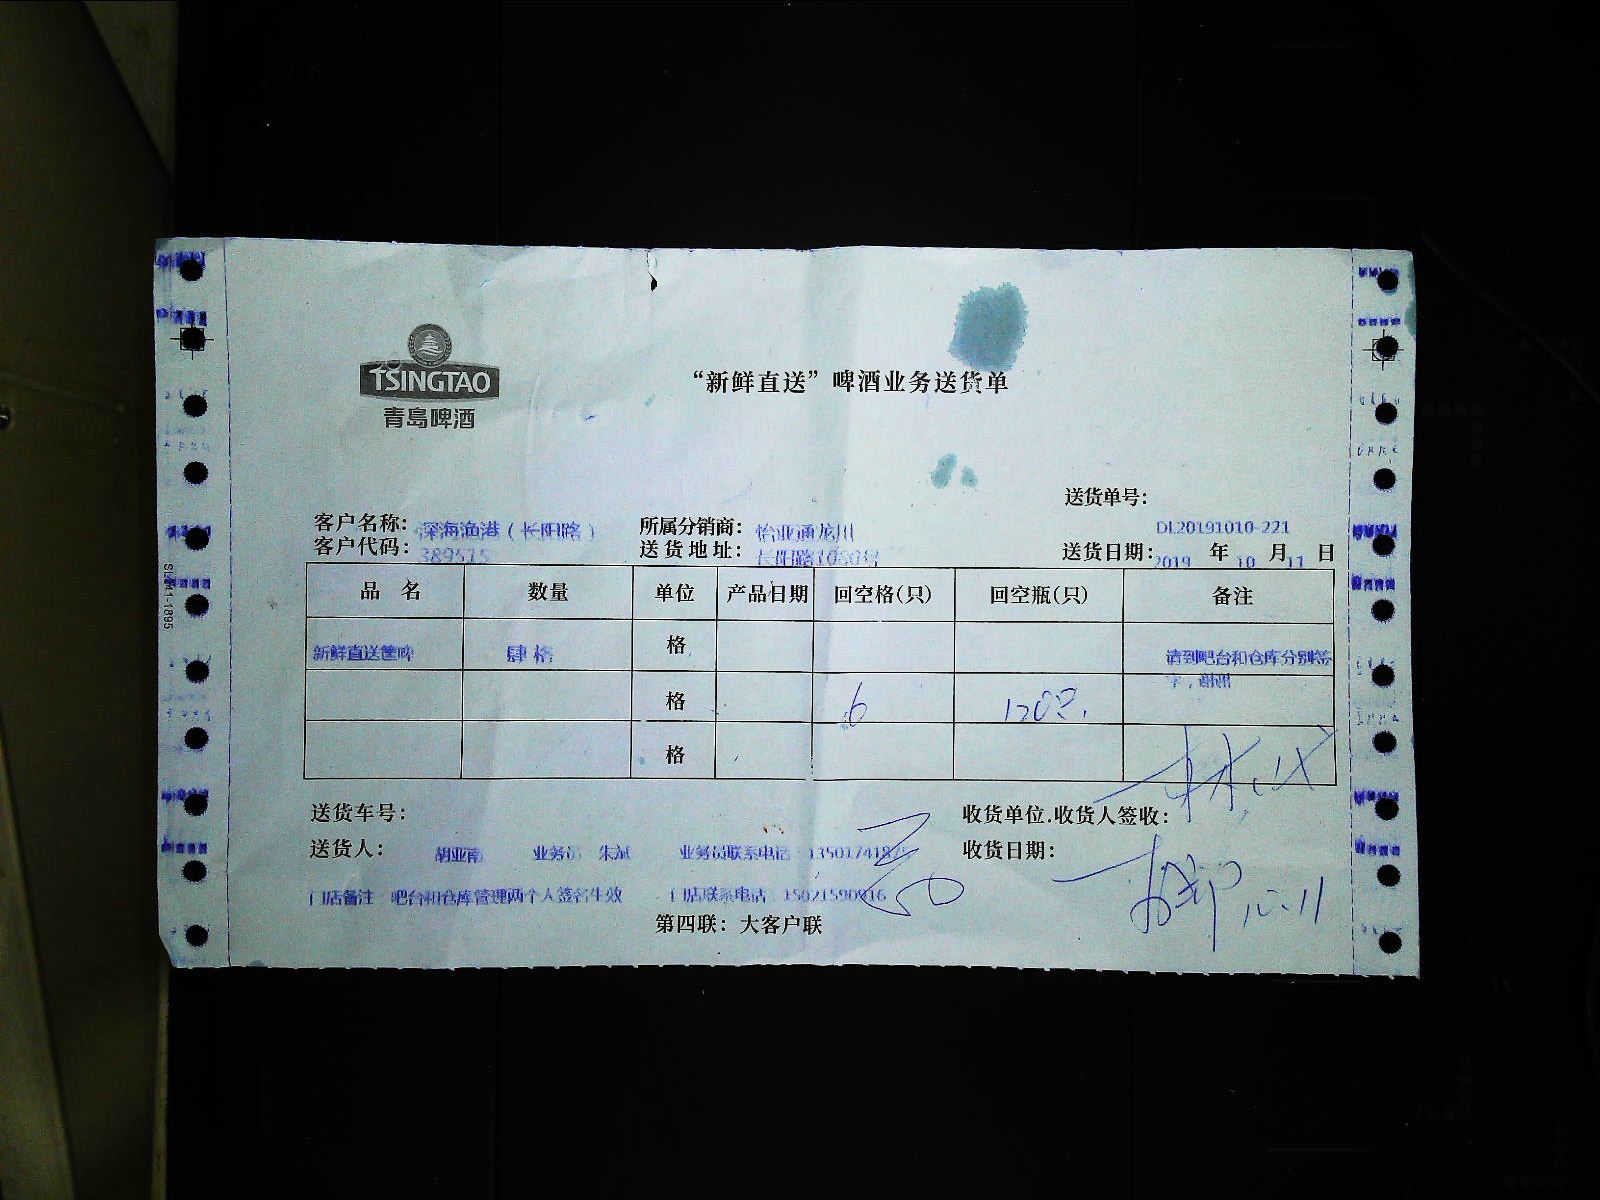 TSINGTAO
青岛啤酒
“新鲜直送”啤酒业务送货单
送货单号：
DL20191010-221
客户名称：深海渔港（长阳路） 所属分销商：怡亚通龙川
客户代码：389515 送货地址：长阳路1080号 送货日期：2019 年 10 月 11 日
品 名 数量 单位 产品日期 回空格(只) 回空瓶(只) 备注
新鲜直送筐啤 肆格 格 请到吧台和仓库分别签
字，谢谢
格 6 120只.
格
送货车号： 收货单位.收货人签收：
送货人： 胡亚南 业务员 朱斌 业务员联系电话：135017418 收货日期：
10.11
门店备注 吧台和仓库管理两个人签名生效 门店联系电话：15021590916
第四联：大客户联